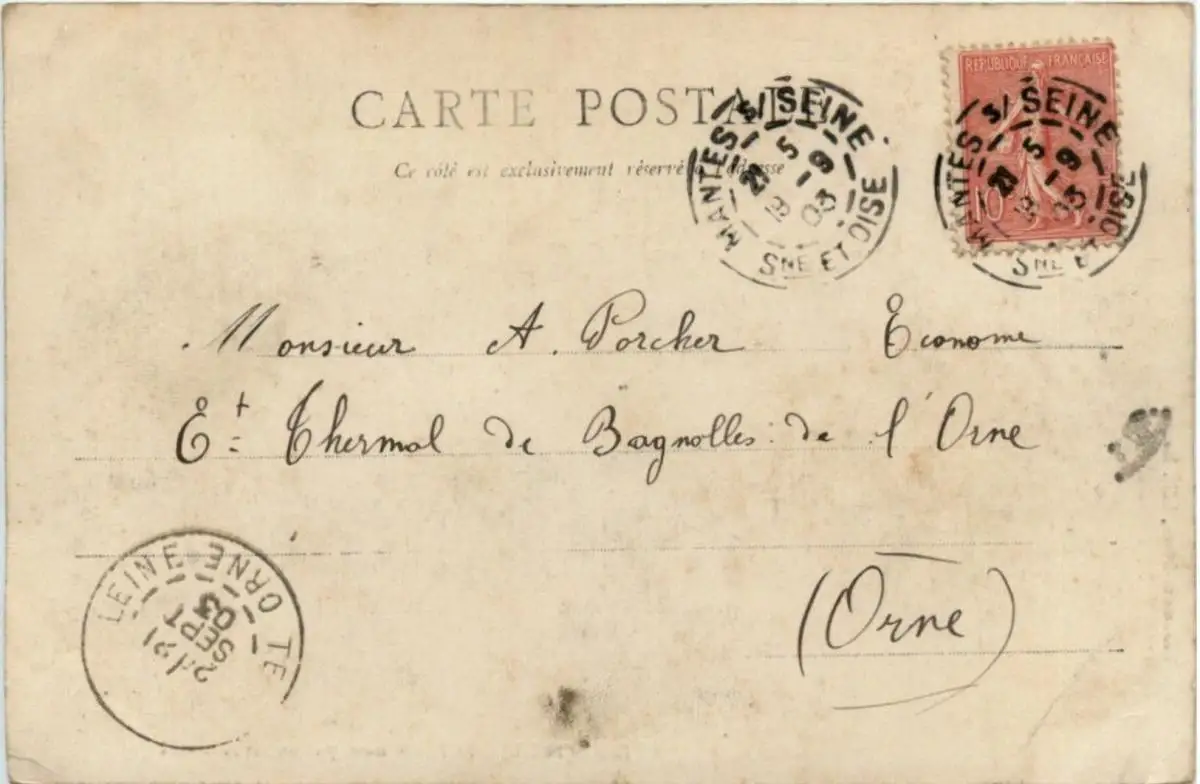 CARTE POSTALE
Ce côté est exclusivement réservé à l'adresse
REPUBLIQUE FRANÇAISE
10
MANTES S/ SEINE
5 9 03
SNE ET OISE
MANTES S/ SEINE
5 9 03
SNE ET OISE
Monsieur A. Porcher Économe
Et Thermal de Bagnolles de l'Orne
(Orne)
ORNE
SEPT
03